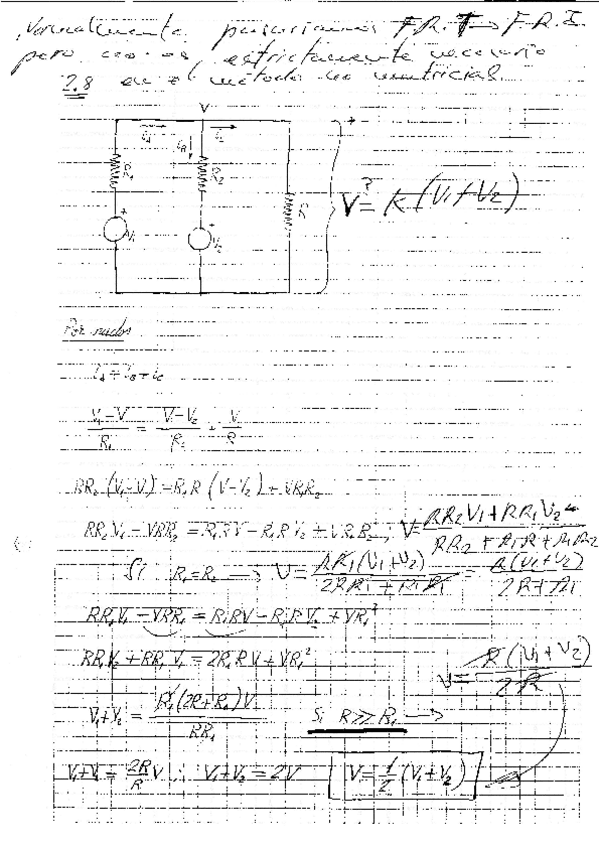 Normalmente pasaríamos F.R.T → F.R.I.
pero no es estrictamente necesario
2.8 en el método no matricial.
V
i_A i_B i_C
R_1 R_2 R
V_1 V_2
+
V ?= K (V1+V2)
Por nudos
i_A = i_B + i_C
(V_1-V)/R_1 = (V-V_2)/R_2 + V/R
RR_2 (V_1-V) = R_1R (V-V_2) + VR_1R_2
RR_2V_1 - VRR_2 = R_1RV - R_1RV_2 + VR_1R_2, V = (RR2V1 + RR1V2)/(RR2 + R1R + R1R2)
Si R_1=R_2 → V = (RR1(V1+V2))/(2RR1 + R1R1) = (R(V1+V2))/(2R+R1)
RR_1V_1 - VRR_1 = R_1RV - R_1RV_2 + VR_1²
RR_1V_2 + RR_1V_1 = 2R_1RV + VR_1²
V_1+V_2 = (R_1(2R+R_1)V)/(RR_1) Si R>>R_1 → V = (R(V1+V2))/(2R)
V_1+V_2 = (2R/R)V ∴ V_1+V_2 = 2V V = 1/2 (V_1+V_2)